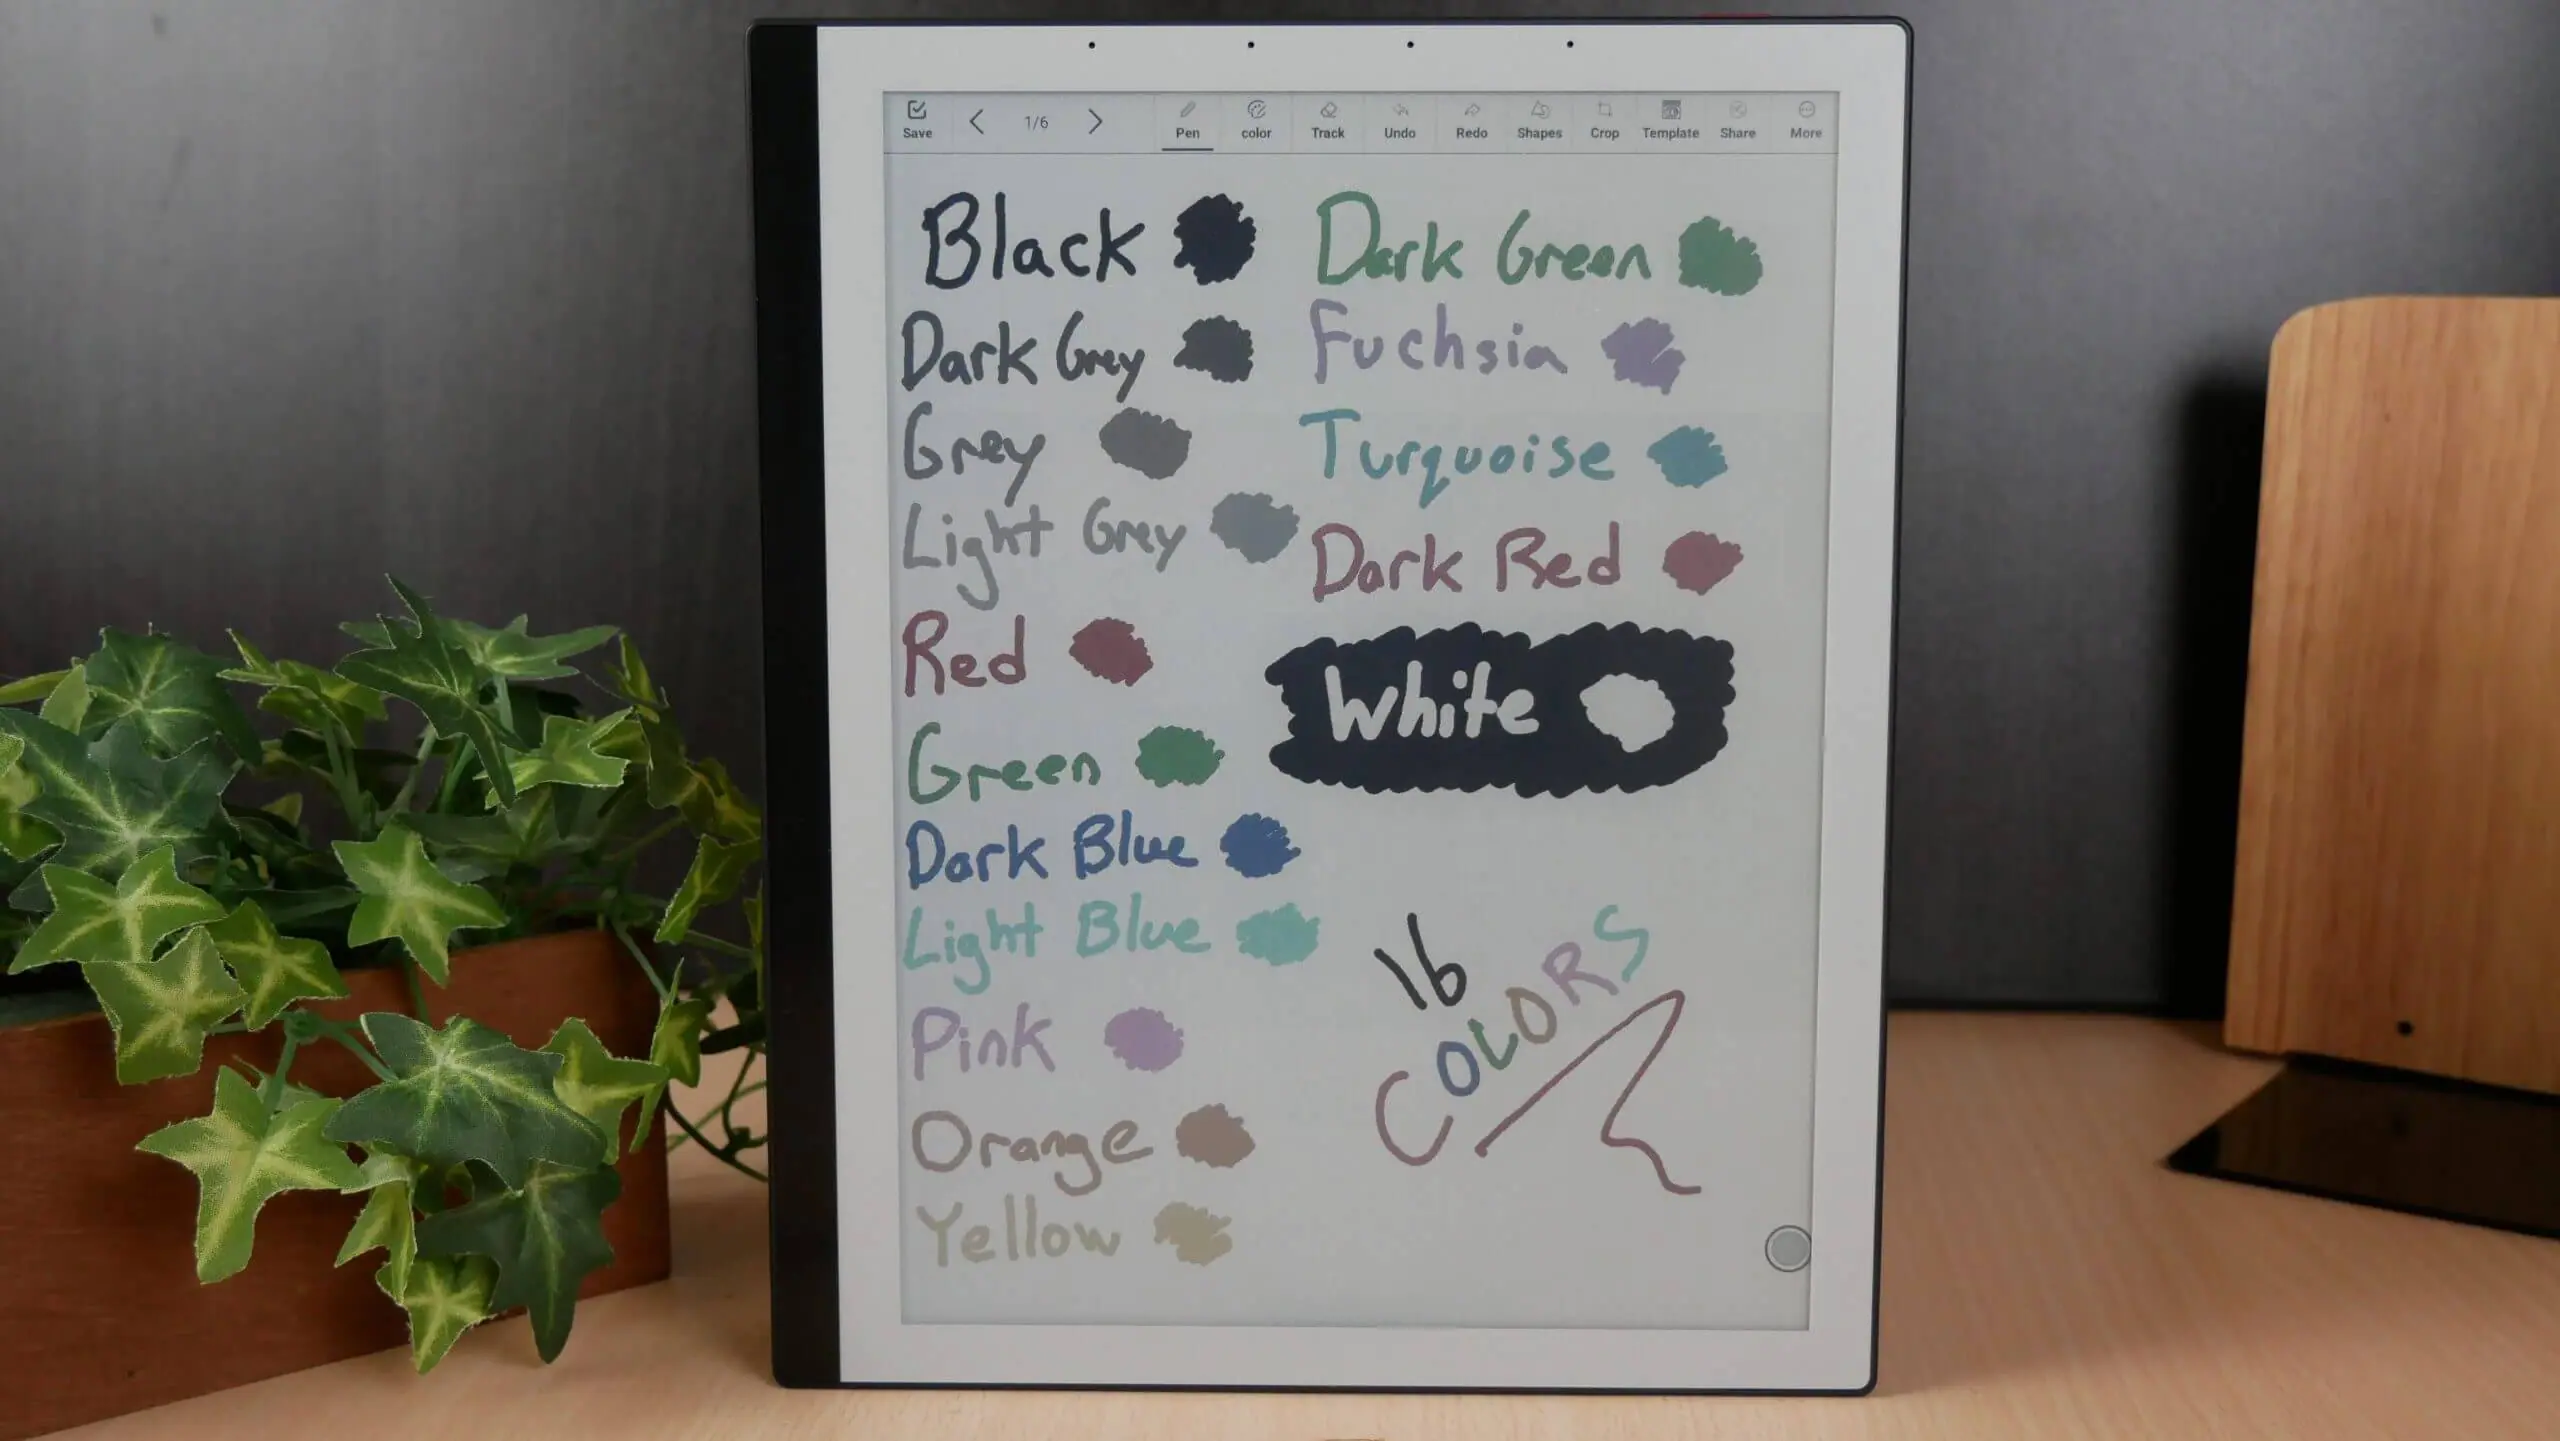 Save 1/6 Pen color Track Undo Redo Shapes Crop Template Share More
Black
Dark Grey
Grey
Light Grey
Red
Green
Dark Blue
Light Blue
Pink
Orange
Yellow
Dark Green
Fuchsia
Turquoise
Dark Red
White
16
COLORS